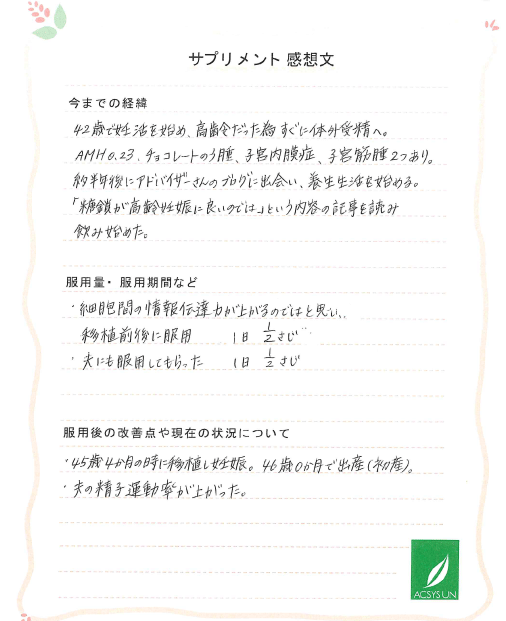 サプリメント 感想文
今までの経緯
42歳で妊活を始め、高齢だった為 すぐに体外受精へ。
AMH0.23.チョコレートのう腫、子宮内膜症、子宮筋腫2つあり。
約半年後にアドバイザーさんのブログに出会い、養生生活を始める。
「糖鎖が高齢妊娠に良いのでは」という内容の記事を読み
飲み始めた。
服用量・服用期間など
・細胞間の情報伝達力が上がるのではと思い、
移植前後に服用 1日 1/2さじ
・夫にも服用してもらった 1日 1/2さじ
服用後の改善点や現在の状況について
・45歳4か月の時に移植し妊娠。46歳0か月で出産(初産)。
・夫の精子運動率が上がった。
ACSYSUN